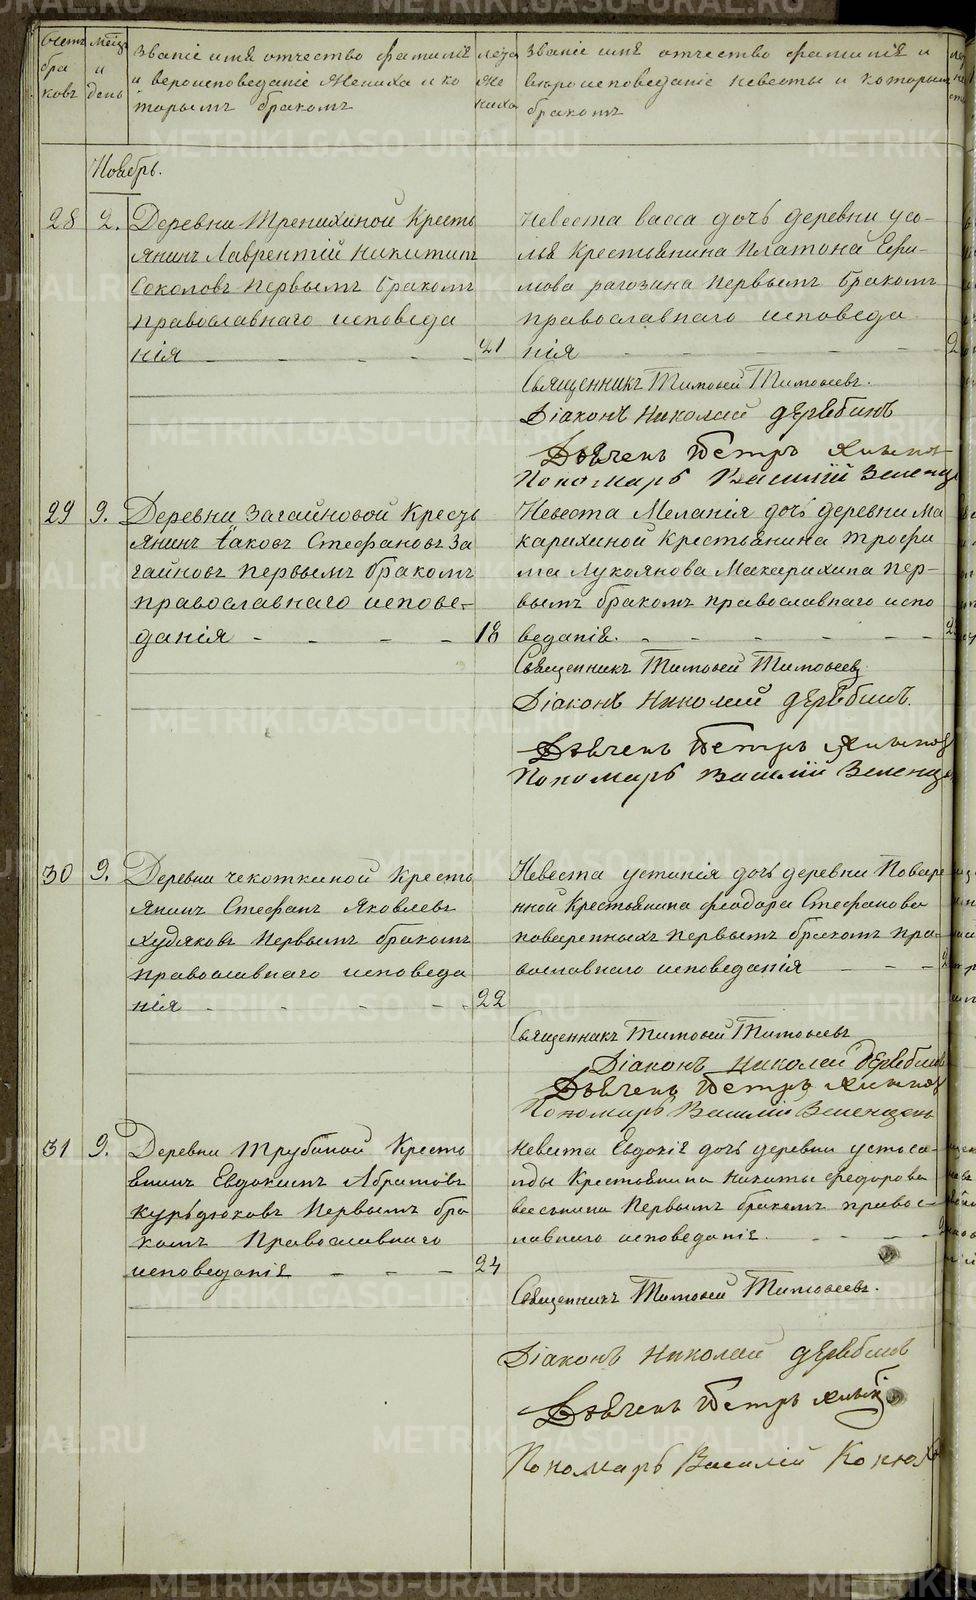 Счетъ бра ковъ
Мѣсяц и день
Званіе имя отчество фамилія
и вероисповеданіе Жениха и ко
торымъ бракомъ
Лета Же ниха
Званіе имя отчество фамилія и
вероисповеданіе невесты и которым
бракомъ
Ноябрь.
28
2.
Деревни Трепихиной Кресть
янинъ Лаврентій Никитинъ
Соколовъ первымъ бракомъ
православнаго исповеда
нія
21
Невеста Васса дочь деревни Усо-
лья Крестьянина Платона Ефи-
мова рагозина первымъ бракомъ
православнаго исповеда
нія
2
Священникъ Тимофей Тимофеевъ.
Діаконъ Николай Дерябинъ
Дьячекъ Петръ
Пономарь Василій Зеленц
29
9.
Деревни Загайновой Кресть
янинъ Іаковъ Стефановъ За
гайновъ первымъ бракомъ
православнаго испове-
данія
18
Невеста Меланія дочь деревни Ма
карихиной Крестьянина Трофи
ма Лукоянова Макарихина пер-
вымъ бракомъ православнаго испо
веданія.
2
Священникъ Тимофей Тимофеевъ
Діаконъ Николай Дерябинъ.
Дьячекъ Петръ
Пономарь Василій Зеленц
30
9.
Деревни Чекоткиной Кресть
янинъ Стефанъ Яковлевъ
Худяковъ первымъ бракомъ
православнаго исповеда
нія
22
Невеста Устинія дочь деревни Поваре
нной Крестьянина Феодора Стефанова
поваренныхъ первымъ бракомъ пра-
вославнаго исповеданія
2
Священникъ Тимофей Тимофеевъ
Діаконъ Николай Дерябинъ
Дьячекъ Петръ
Пономарь Василій Зеленцовъ
31
9.
Деревни Трубиной Кресть
янинъ Евдокимъ Абрамовъ
Курьдюковъ Первымъ бра
комъ Православнаго
исповеданія
24
Невеста Евдокія дочь деревни Устьса-
лды Крестьянина Никиты Федорова
первымъ бракомъ правос-
лавнаго исповеданія.
Священникъ Тимофей Тимофеевъ.
Діаконъ Николай Дерябинъ
Дьячекъ Петръ
Пономарь Василій
METRIKI.GASO-URAL.RU